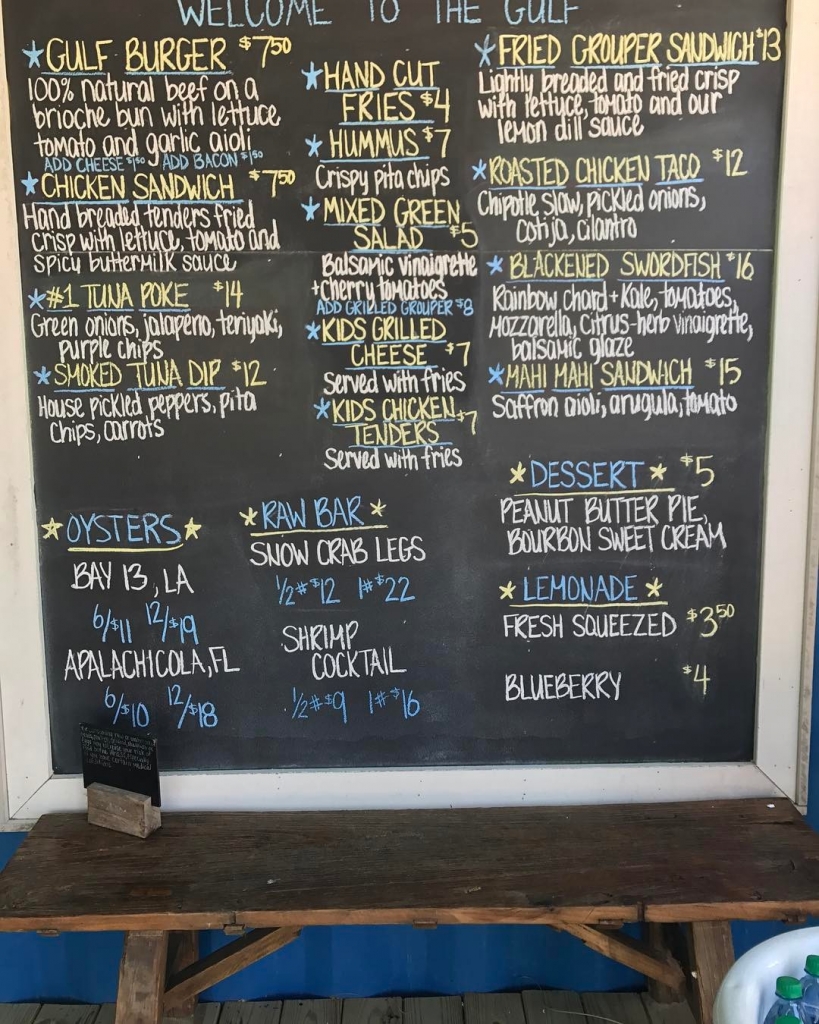 WELCOME TO THE GULF
GULF BURGER $7.50
100% natural beef on a
brioche bun with lettuce,
tomato and garlic aioli
ADD CHEESE $1.50 ADD BACON $1.50
CHICKEN SANDWICH $7.50
Hand breaded tenders fried
crisp with lettuce, tomato and
spicy buttermilk sauce
#1 TUNA POKE $14
Green onions, jalapeño, teriyaki,
purple chips
SMOKED TUNA DIP $12
House pickled peppers, pita
chips, carrots
HAND CUT
FRIES $4
HUMMUS $7
Crispy pita chips
MIXED GREEN
SALAD $5
Balsamic vinaigrette
+ cherry tomatoes
ADD GRILLED GROUPER $8
KIDS GRILLED
CHEESE $7
Served with fries
KIDS CHICKEN $7
TENDERS
Served with fries
FRIED GROUPER SANDWICH $13
Lightly breaded and fried crisp
with lettuce, tomato and our
lemon dill sauce
ROASTED CHICKEN TACO $12
Chipotle slaw, pickled onions,
cotija, cilantro
BLACKENED SWORDFISH $16
Rainbow chard + Kale, tomatoes,
Mozzarella, Citrus-herb vinaigrette,
balsamic glaze
MAHI MAHI SANDWICH $15
Saffron aioli, arugula, tomato
OYSTERS
BAY 13, LA
6/$11 12/$19
APALACHICOLA, FL
6/$10 12/$18
RAW BAR
SNOW CRAB LEGS
1/2# $12 1# $22
SHRIMP
COCKTAIL
1/2# $9 1# $16
DESSERT $5
PEANUT BUTTER PIE,
BOURBON SWEET CREAM
LEMONADE
FRESH SQUEEZED $3.50
BLUEBERRY $4